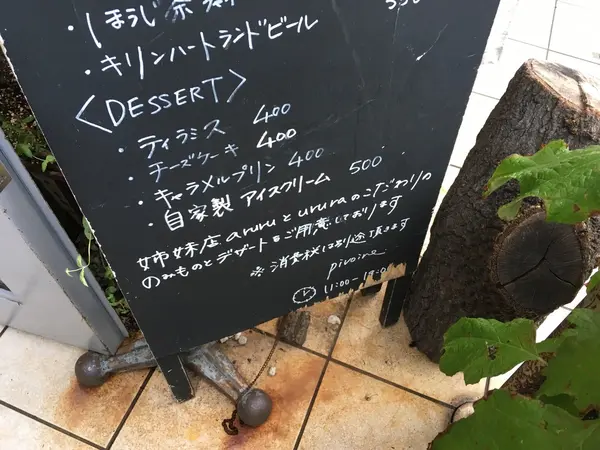 ・ほうじ茶
・キリンハートランドビール
<DESSERT>
・ティラミス 400
・チーズケーキ 400
・キャラメルプリン 400
・自家製 アイスクリーム 500
姉妹店 aruruとururaのこだわりの
のみものとデザートをご用意しております
※消費税は別途頂きます
pivoine
11:00-19:00